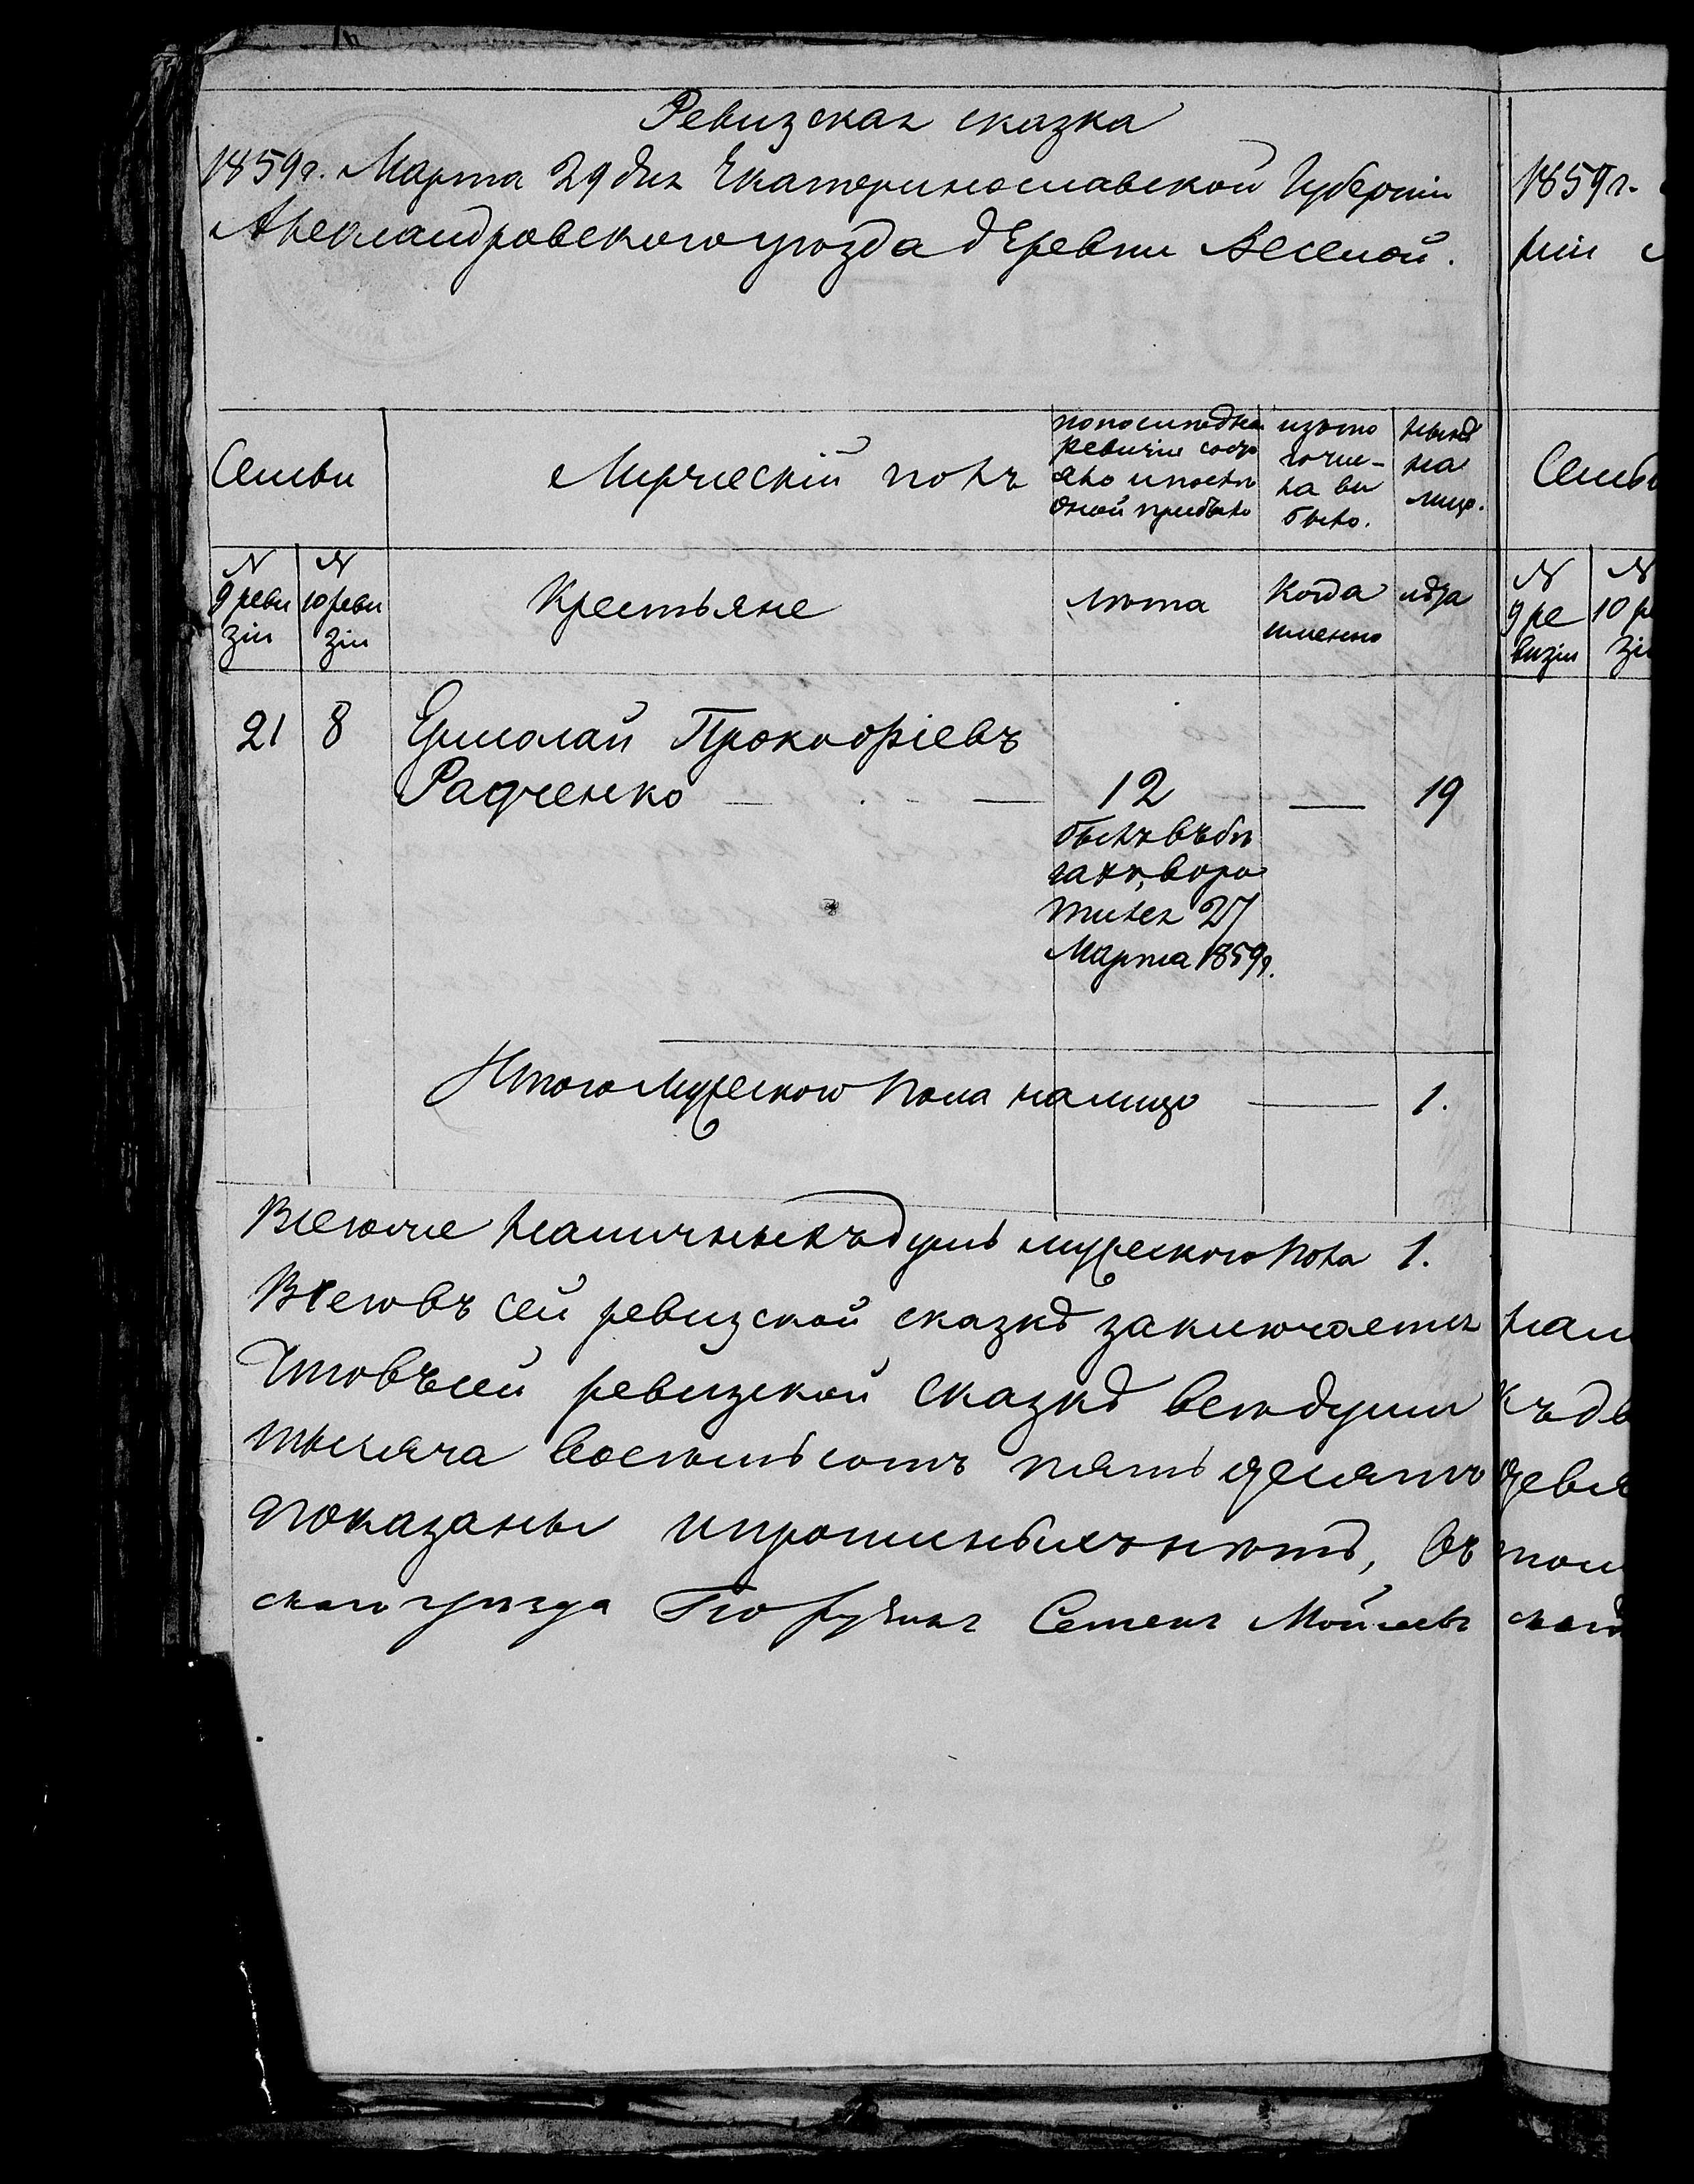 Ревизская сказка
1859г. Марта 29 дня Екатеринославской Губерніи
Александровского уѣзда деревни Веселой.
Семьи
Мужескій полъ
по последней
ревизіи состо
яло и послѣ
оной прибыло
изъ того
числа вы
было.
нынѣ
на
лицо.
№
9 реви
зіи
№
10 реви
зіи
Крестьяне
лѣта
Когда
именно
лѣта
21 8 Ермолай Прокофіевъ
Радченко — — 12 — 19
былъ въ бѣ
гахъ, воро
тился 27
Марта 1859г.
Итого мужеского пола налицо — 1.
Всего же наличныхъ душъ мужеского пола 1.
Всего въ сей ревизской сказкѣ заключается
Что въ сей ревизской сказкѣ все души
тысяча восемьсотъ пятьдесятъ
показаны и прописныхъ нѣтъ, въ
ского уѣзда Семенъ
1859г.
ріи
Семьи
№
9 ре
визіи
№
10 ре
зіи
нали
къ дв
девя